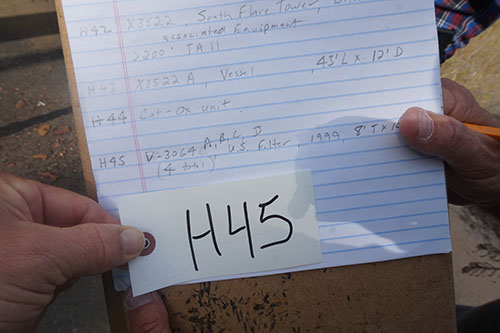 H42 X3522, South Flare Tower,
associated Equipment
>200' TALL
H43 X3522A, Vessel, 43' L x 12' D
H44 Cat-Ox unit
H45 V-3064 A, B, C, D U.S. Filter, 1999, 8' T x
(4 total)
H45